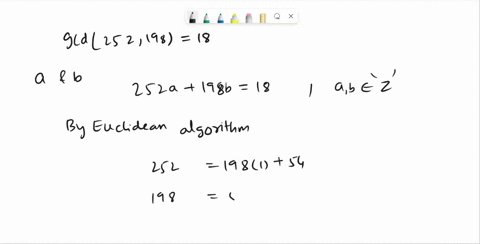 gcd(252,198) = 18
a & b 252a + 198b = 18 , a,b ∈ Z'
By Euclidean algorithm
252 = 198(1) + 54
198 = (